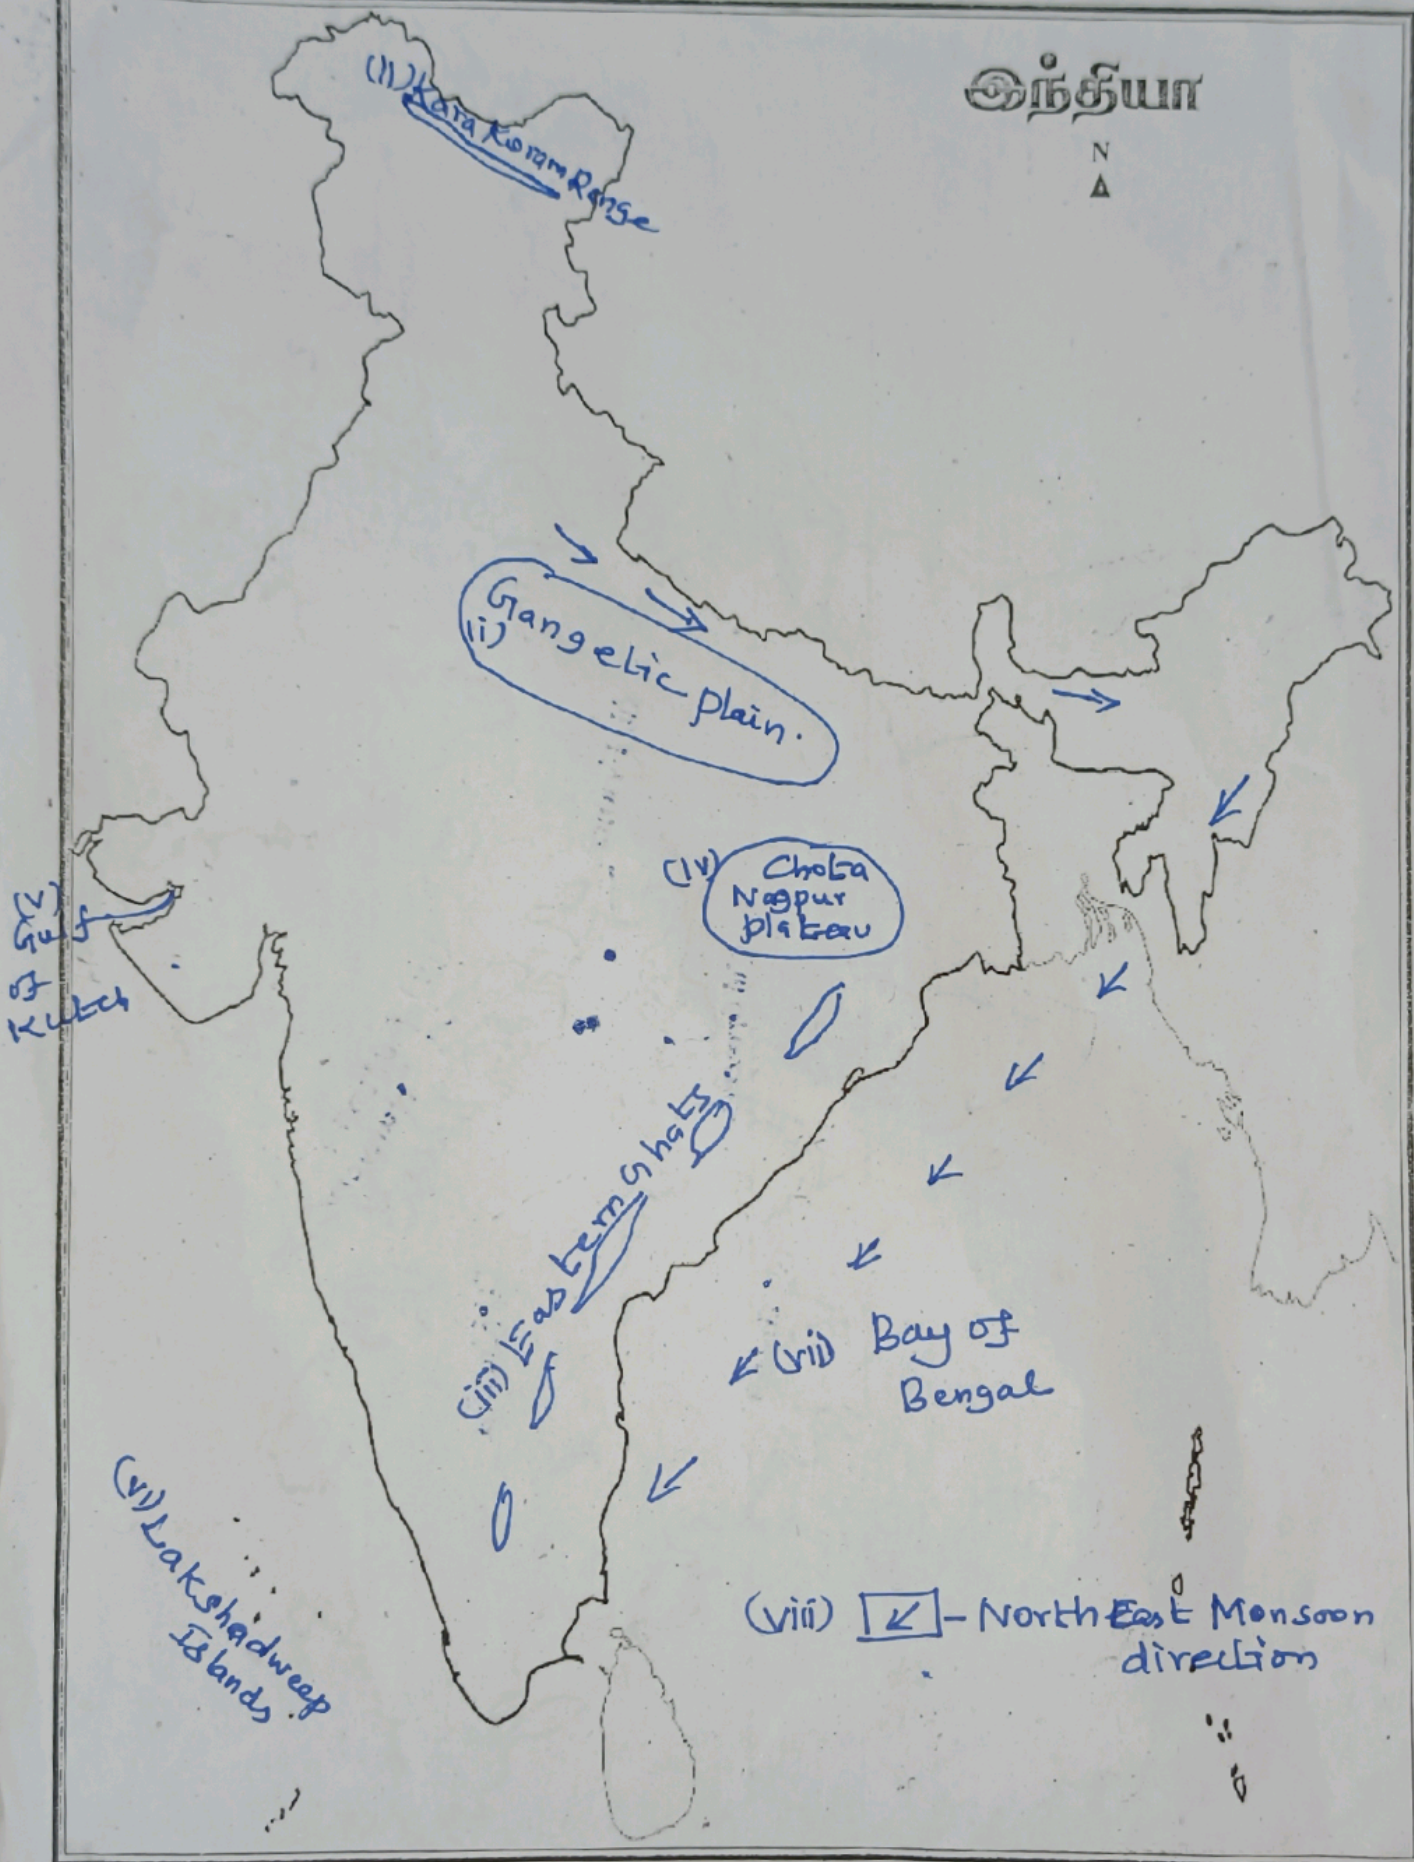 இந்தியா
N
(ii) Kara Koram Range
Gangetic plain.
(i)
(iv) Chota
Nagpur
plateau
Gulf
of
Kutch
(iii) Eastern Ghats
(vii) Bay of
Bengal
(vi) Lakshadweep
Islands
(viii) - North East Monsoon
direction